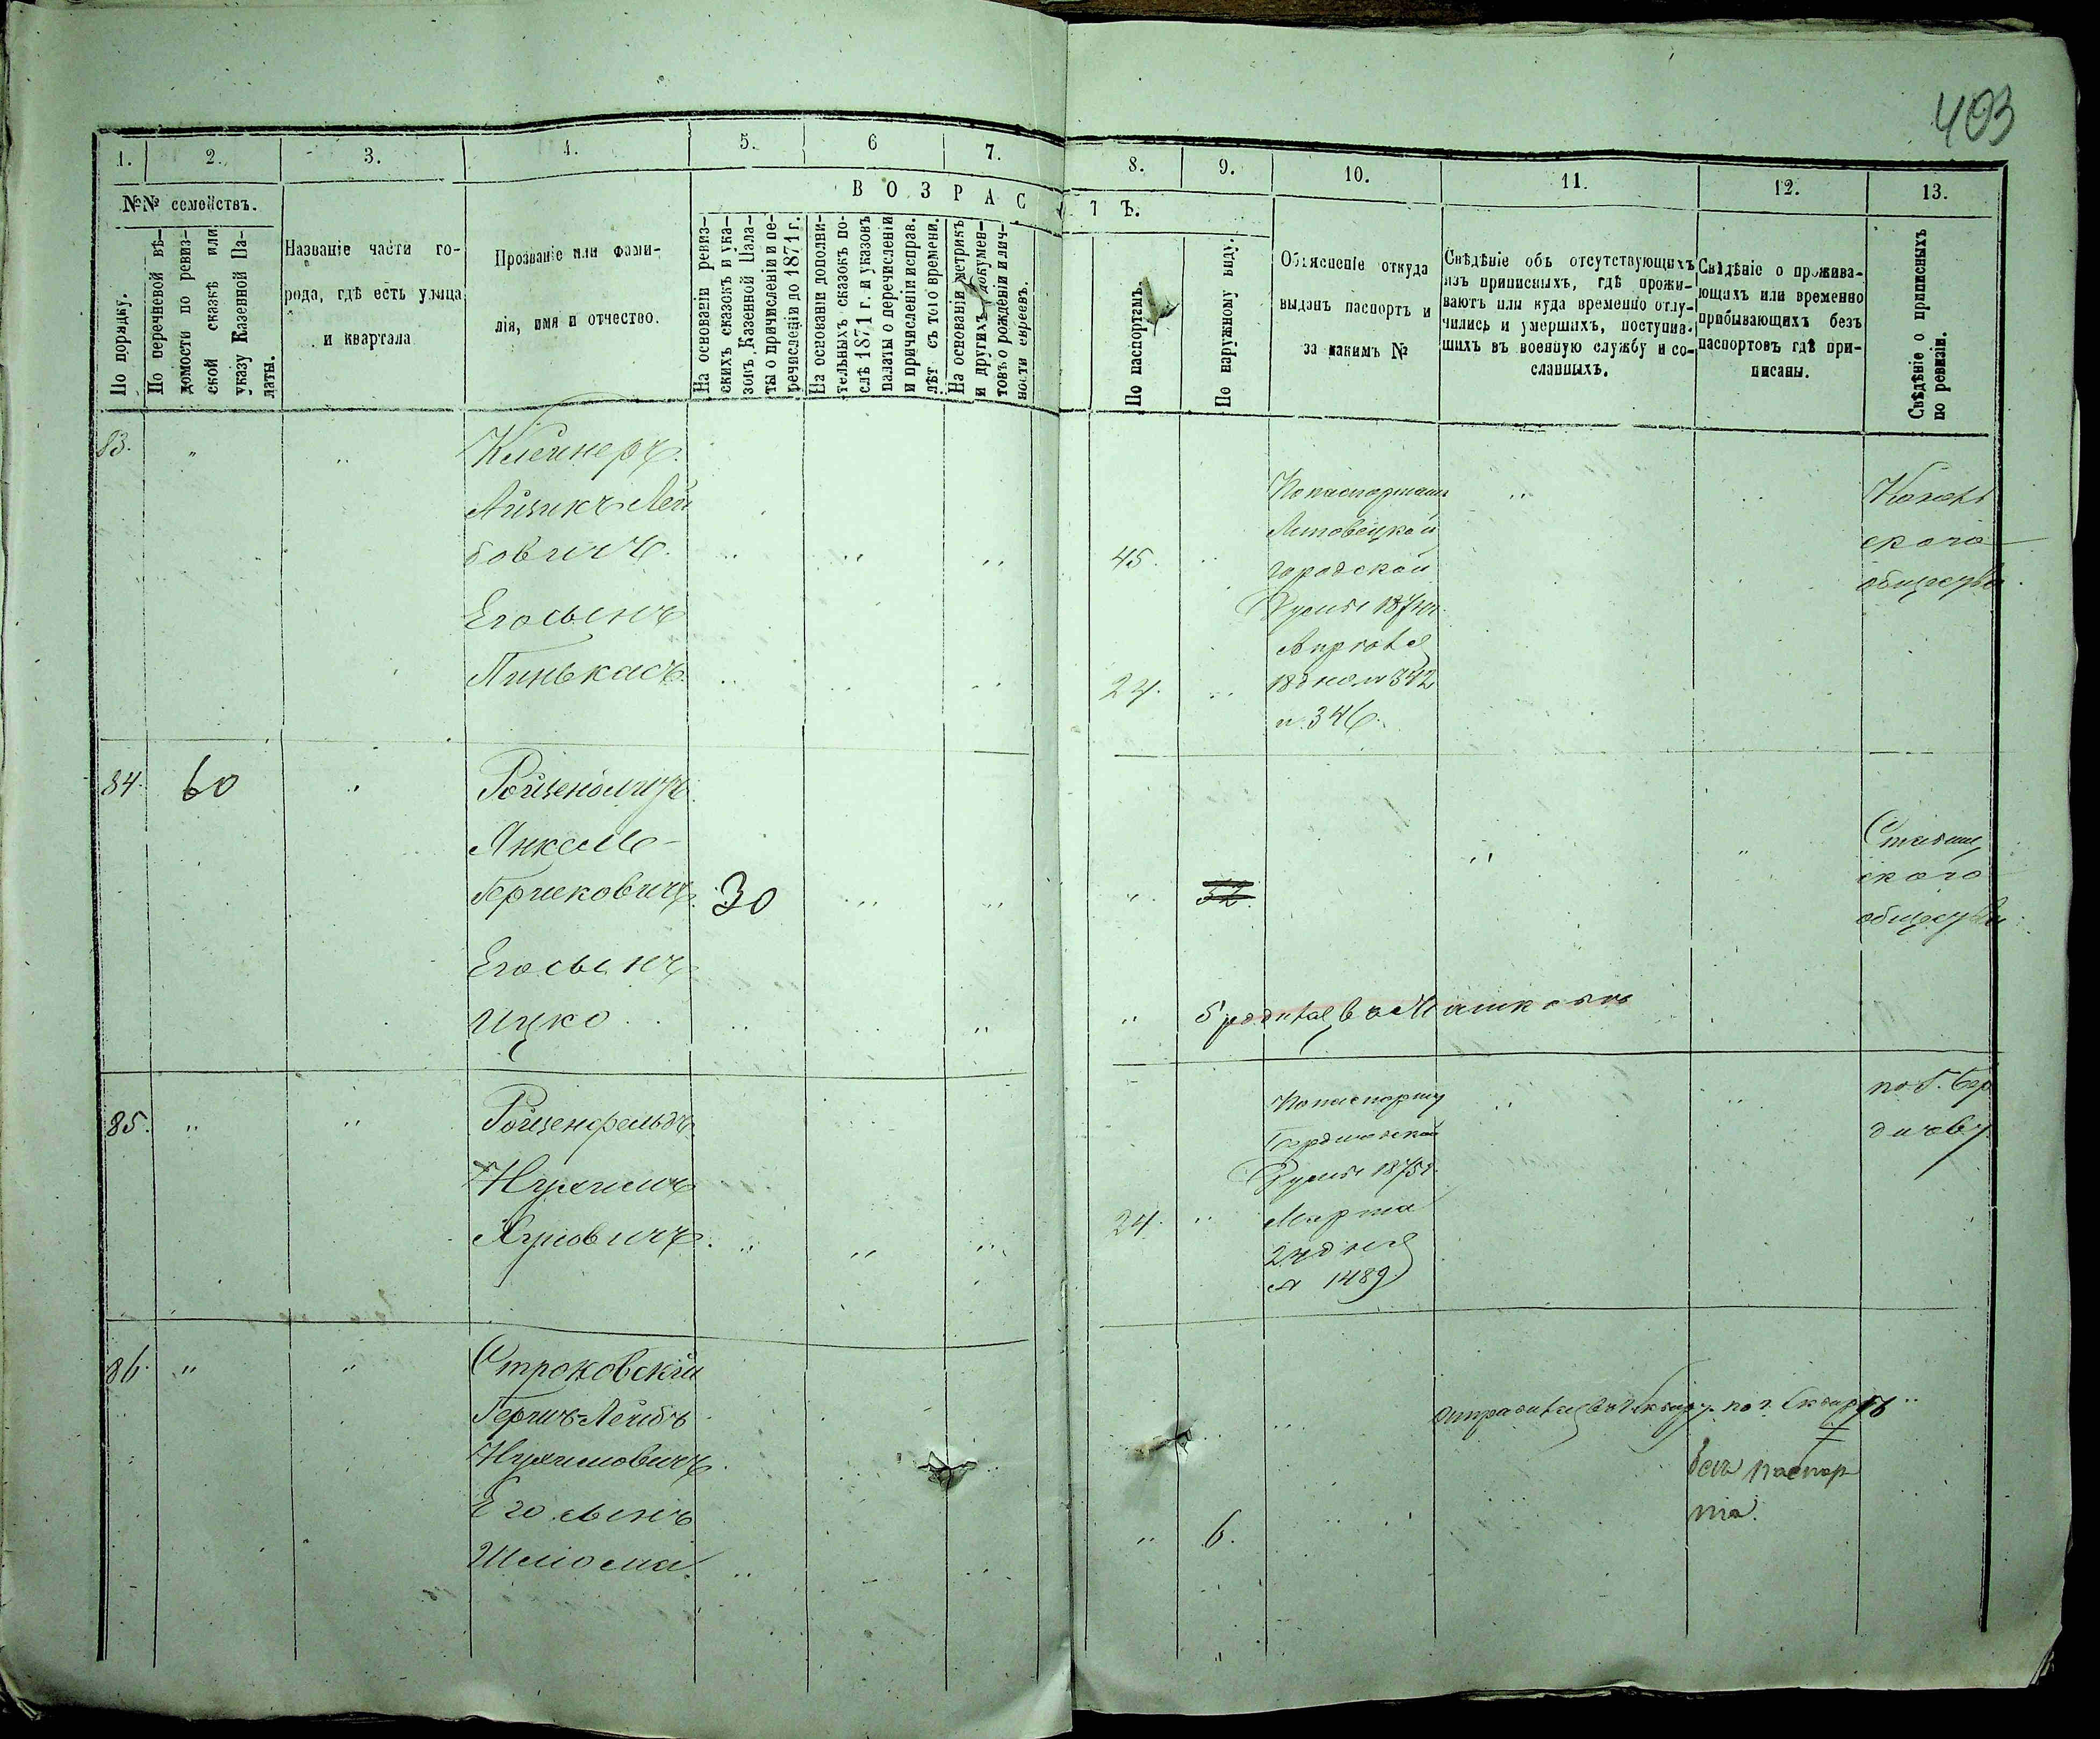 403
1. 2. 3. 4. 5. 6 7. 8. 9. 10. 11. 12. 13.
№№ семействъ.
По порядку.
По перечневой вѣ-
домости по ревиз-
ской сказкѣ или
указу Казенной Па-
латы.
Названіе части го-
рода, гдѣ есть улица
и квартала
Прозваніе или фами-
лія, имя и отчество.
ВОЗРАСТЪ.
На основаніи ревиз-
скихъ сказокъ и ука-
зовъ Казенной Пала-
ты о причисленіи и пе-
речисленіи до 1871 г.
На основаніи дополни-
тельныхъ сказокъ по-
слѣ 1871 г. и указовъ
палаты о перечисленіи
и причисленіи исправ.
лѣт съ того времени.
На основаніи метрикъ
и другихъ документ-
товъ о рожденіи и лич-
ности евреевъ.
По паспортамъ.
По наружному виду.
Объясненіе откуда
выданъ паспортъ и
за какимъ №
Свѣдѣніе объ отсутствующихъ
изъ приписныхъ, гдѣ прожи-
ваютъ или куда временно отлу-
чились и умершихъ, поступив-
шихъ въ военную службу и со-
сланныхъ.
Свѣдѣніе о прожива-
ющихъ или временно
прибывающихъ безъ
паспортовъ гдѣ при-
писаны.
Свѣдѣніе о приписныхъ
по ревизіи.
83. " "
Клейнеръ
Айзикъ Лей
бовичъ. 45.
Его сынъ
Пинькасъ. 24.
По паспортамъ
Липовецкой
городской
Думы 187
Апреля
18 дня № 342
и 346.
ского
общества.
84. 60
Ройзенблитъ
Янкель
Гершковичъ. 30 " " " 52.
Его сынъ
Ицко " " "
ского
общества
85. " "
Ройзенфельдъ
Нухимъ
Хуновичъ. " " " 24. "
По паспорту
Бердичевской
Думы 1875 г.
Марта
24 дня
№ 1489
по г. Бер
дичеву
86. " "
Строковскій
Гершъ-Лейбъ
Нухимовичъ.
Его сынъ
Шліома. " 6.
по г. Сквирѣ
безъ паспор
та.